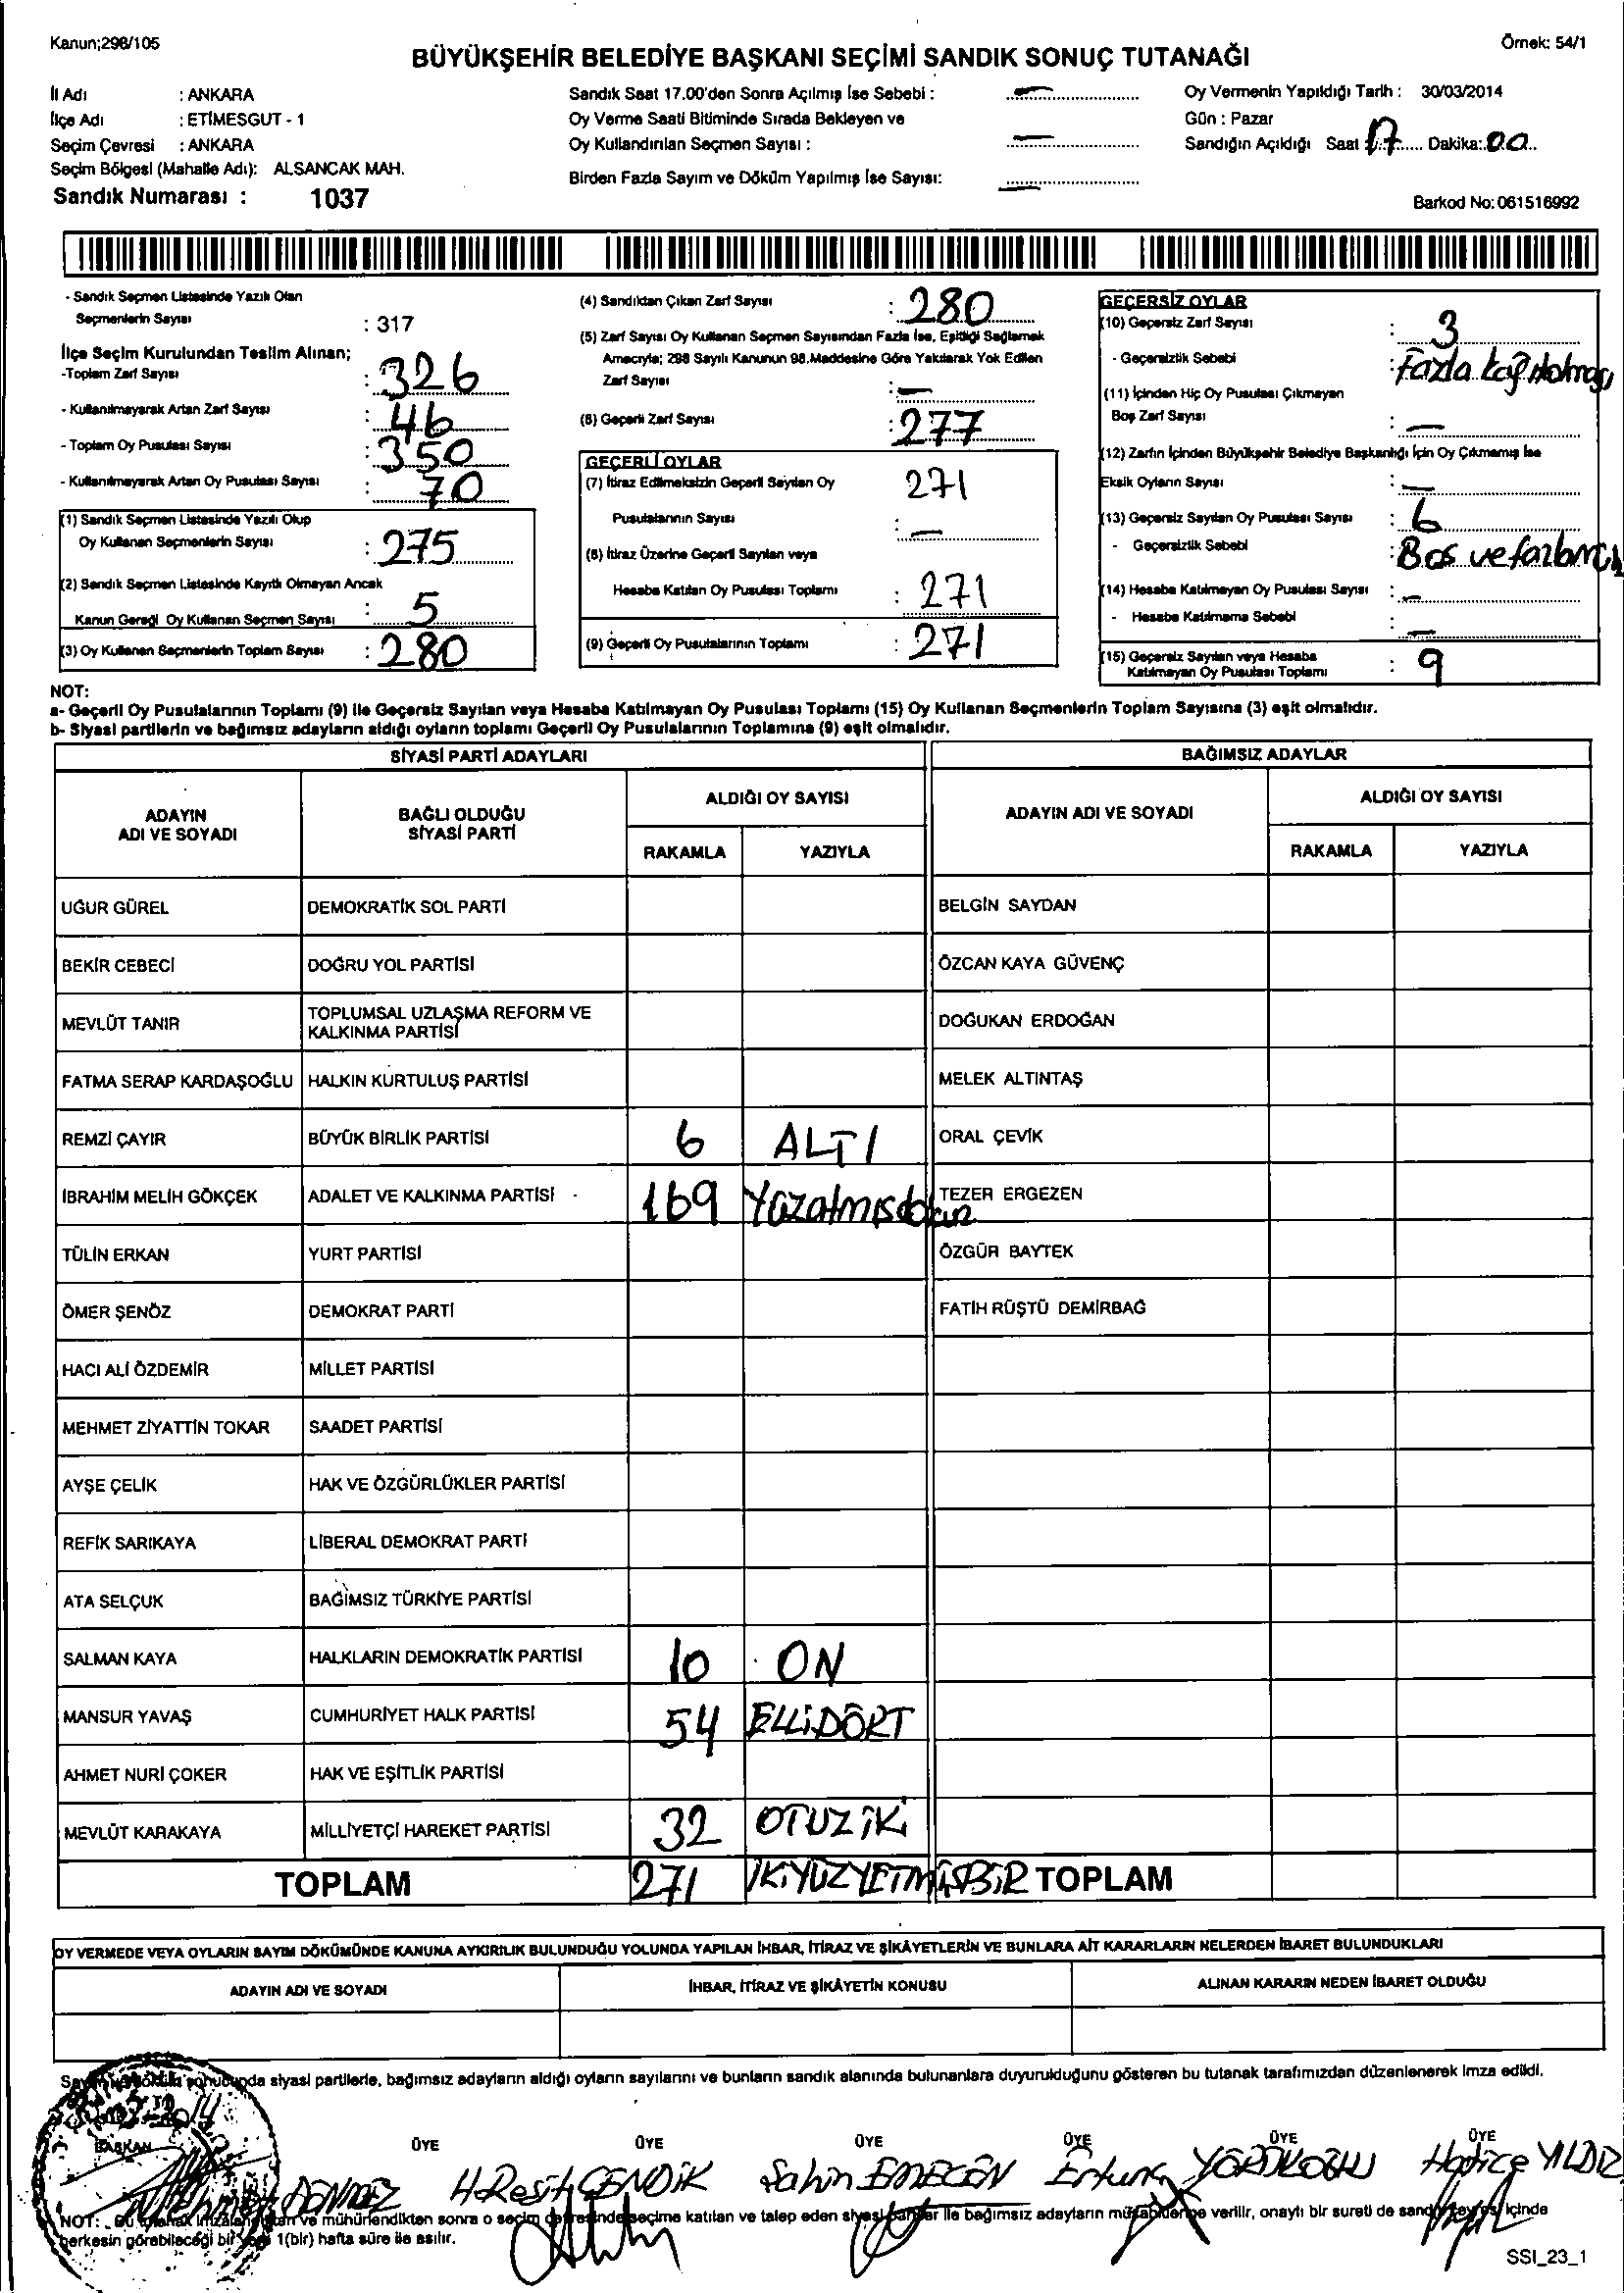 Kanun;298/105
Örnek: 54/1
BÜYÜKŞEHİR BELEDİYE BAŞKANI SEÇİMİ SANDIK SONUÇ TUTANAĞI
İl Adı : ANKARA
İlçe Adı : ETİMESGUT - 1
Seçim Çevresi : ANKARA
Seçim Bölgesi (Mahalle Adı): ALSANCAK MAH.
Sandık Numarası : 1037
Sandık Saat 17.00'den Sonra Açılmış İse Sebebi : —
Oy Verme Saati Bitiminde Sırada Bekleyen ve
Oy Kullandırılan Seçmen Sayısı : —
Birden Fazla Sayım ve Döküm Yapılmış İse Sayısı: —
Oy Vermenin Yapıldığı Tarih : 30/03/2014
Gün : Pazar
Sandığın Açıldığı Saat 17 Dakika: 00
Barkod No: 061516992
- Sandık Seçmen Listesinde Yazılı Olan
Seçmenlerin Sayısı : 317
İlçe Seçim Kurulundan Teslim Alınan;
-Toplam Zarf Sayısı : 326
- Kullanılmayarak Artan Zarf Sayısı : 46
- Toplam Oy Pusulası Sayısı : 350
- Kullanılmayarak Artan Oy Pusulası Sayısı : 70
(1) Sandık Seçmen Listesinde Yazılı Olup
Oy Kullanan Seçmenlerin Sayısı : 275
(2) Sandık Seçmen Listesinde Kayıtlı Olmayan Ancak
Kanun Gereği Oy Kullanan Seçmen Sayısı : 5
(3) Oy Kullanan Seçmenlerin Toplam Sayısı : 280
(4) Sandıktan Çıkan Zarf Sayısı : 280
(5) Zarf Sayısı Oy Kullanan Seçmen Sayısından Fazla İse, Eşitliği Sağlamak
Amacıyla; 298 Sayılı Kanunun 98.Maddesine Göre Yakılarak Yok Edilen
Zarf Sayısı : —
(6) Geçerli Zarf Sayısı : 277
GEÇERLİ OYLAR
(7) İtiraz Edilmeksizin Geçerli Sayılan Oy 271
Pusulalarının Sayısı : —
(8) İtiraz Üzerine Geçerli Sayılan veya
Hesaba Katılan Oy Pusulası Toplamı : 271
(9) Geçerli Oy Pusulalarının Toplamı : 271
GEÇERSİZ OYLAR
(10) Geçersiz Zarf Sayısı : 3
- Geçersizlik Sebebi : Fazla kağıt olması
(11) İçinden Hiç Oy Pusulası Çıkmayan
Boş Zarf Sayısı : —
(12) Zarfın İçinden Büyükşehir Belediye Başkanlığı İçin Oy Çıkmamış İse
Eksik Oyların Sayısı : —
(13) Geçersiz Sayılan Oy Pusulası Sayısı : 6
- Geçersizlik Sebebi : Boş ve
(14) Hesaba Katılmayan Oy Pusulası Sayısı : —
- Hesaba Katılmama Sebebi : —
(15) Geçersiz Sayılan veya Hesaba
Katılmayan Oy Pusulası Toplamı : 9
NOT:
a- Geçerli Oy Pusulalarının Toplamı (9) ile Geçersiz Sayılan veya Hesaba Katılmayan Oy Pusulası Toplamı (15) Oy Kullanan Seçmenlerin Toplam Sayısına (3) eşit olmalıdır.
b- Siyasi partilerin ve bağımsız adayların aldığı oyların toplamı Geçerli Oy Pusulalarının Toplamına (9) eşit olmalıdır.
SİYASİ PARTİ ADAYLARI BAĞIMSIZ ADAYLAR
ADAYIN ADI VE SOYADI BAĞLI OLDUĞU SİYASİ PARTİ ALDIĞI OY SAYISI ADAYIN ADI VE SOYADI ALDIĞI OY SAYISI
RAKAMLA YAZIYLA RAKAMLA YAZIYLA
UĞUR GÜREL DEMOKRATİK SOL PARTİ BELGİN SAYDAN
BEKİR CEBECİ DOĞRU YOL PARTİSİ ÖZCAN KAYA GÜVENÇ
MEVLÜT TANIR TOPLUMSAL UZLAŞMA REFORM VE KALKINMA PARTİSİ DOĞUKAN ERDOĞAN
FATMA SERAP KARDAŞOĞLU HALKIN KURTULUŞ PARTİSİ MELEK ALTINTAŞ
REMZİ ÇAYIR BÜYÜK BİRLİK PARTİSİ 6 ALTI ORAL ÇEVİK
İBRAHİM MELİH GÖKÇEK ADALET VE KALKINMA PARTİSİ 169 Yüzatmışdokuz TEZER ERGEZEN
TÜLİN ERKAN YURT PARTİSİ ÖZGÜR BAYTEK
ÖMER ŞENÖZ DEMOKRAT PARTİ FATİH RÜŞTÜ DEMİRBAĞ
HACI ALİ ÖZDEMİR MİLLET PARTİSİ
MEHMET ZİYATTİN TOKAR SAADET PARTİSİ
AYŞE ÇELİK HAK VE ÖZGÜRLÜKLER PARTİSİ
REFİK SARIKAYA LİBERAL DEMOKRAT PARTİ
ATA SELÇUK BAĞIMSIZ TÜRKİYE PARTİSİ
SALMAN KAYA HALKLARIN DEMOKRATİK PARTİSİ 10 ON
MANSUR YAVAŞ CUMHURİYET HALK PARTİSİ 54 ELLİDÖRT
AHMET NURİ ÇOKER HAK VE EŞİTLİK PARTİSİ
MEVLÜT KARAKAYA MİLLİYETÇİ HAREKET PARTİSİ 32 OTUZ İKİ
TOPLAM 271 İKİYÜZYETMİŞBİR TOPLAM
OY VERMEDE VEYA OYLARIN SAYIM DÖKÜMÜNDE KANUNA AYKIRILIK BULUNDUĞU YOLUNDA YAPILAN İHBAR, İTİRAZ VE ŞİKÂYETLERİN VE BUNLARA AİT KARARLARIN NELERDEN İBARET BULUNDUKLARI
ADAYIN ADI VE SOYADI İHBAR, İTİRAZ VE ŞİKÂYETİN KONUSU ALINAN KARARIN NEDEN İBARET OLDUĞU
siyasi partilerle, bağımsız adayların aldığı oyların sayılarını ve bunların sandık alanında bulunanlara duyurulduğunu gösteren bu tutanak tarafımızdan düzenlenerek imza edildi.
BAŞKAN ÜYE ÜYE ÜYE ÜYE ÜYE ÜYE
DÖNMEZ H.Reşit CENDİK Şahin Ertunç YÖRÜKOĞLU Hatice YILDIZ
NOT: Bu tutanak imzalandıktan ve mühürlendikten sonra o seçim çevresinde seçime katılan ve talep eden siyasi partiler ile bağımsız adayların müşahidlerine verilir, onaylı bir sureti de sandık çevresi içinde
herkesin görebileceği bir yere 1(bir) hafta süre ile asılır.
SSI_23_1